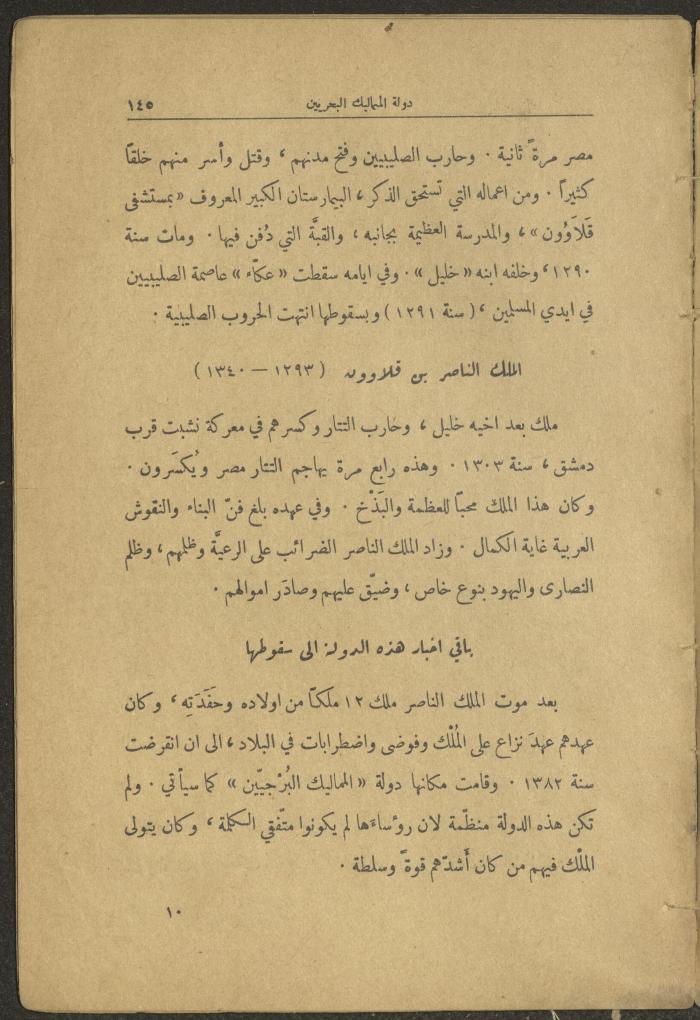 دولة المماليك البحريين ١٤٥
مصر مرةً ثانية . وحارب الصليبيين وفتح مدنهم ، وقتل وأسر منهم خلقاً
كثيراً . ومن اعماله التي تستحق الذكر ، البيمارستان الكبير المعروف «بمستشفى
قَلَاوُون» ، والمدرسة العظيمة بجانبه ، والقبَّة التي دُفن فيها . ومات سنة
١٢٩٠ ، وخلفه ابنه «خليل» . وفي ايامه سقطت «عكّاء» عاصمة الصليبيين
في ايدي المسلمين ، (سنة ١٢٩١) وبسقوطها انتهت الحروب الصليبية .
الملك الناصر بن قلاوون (١٢٩٣ — ١٣٤٠)
ملك بعد اخيه خليل ، وحارب التتار وكسرهم في معركة نشبت قرب
دمشق ، سنة ١٣٠٣ . وهذه رابع مرة يهاجم التتار مصر ويُكسَرون .
وكان هذا الملك محبّاً للعظمة والبَذْخ . وفي عهده بلغ فنّ البناء والنقوش
العربية غاية الكمال . وزاد الملك الناصر الضرائب على الرعيَّة وظلمهم ، وظلم
النصارى واليهود بنوع خاص ، وضيّق عليهم وصادَر اموالهم .
باقي اخبار هذه الدولة الى سقوطها
بعد موت الملك الناصر ملك ١٢ ملكاً من اولاده وحَفَدَتِه ، وكان
عهدهم عهدَ نزاع على المُلْك وفوضى واضطرابات في البلاد ، الى ان انقرضت
سنة ١٣٨٢ . وقامت مكانها دولة «المماليك البُرْجيّين» كما سيأتي . ولم
تكن هذه الدولة منظّمة لان رؤساءَها لم يكونوا متّفقي الكلمة ، وكان يتولى
الملْك فيهم من كان أَشدّهم قوةً وسلطة .
١٠